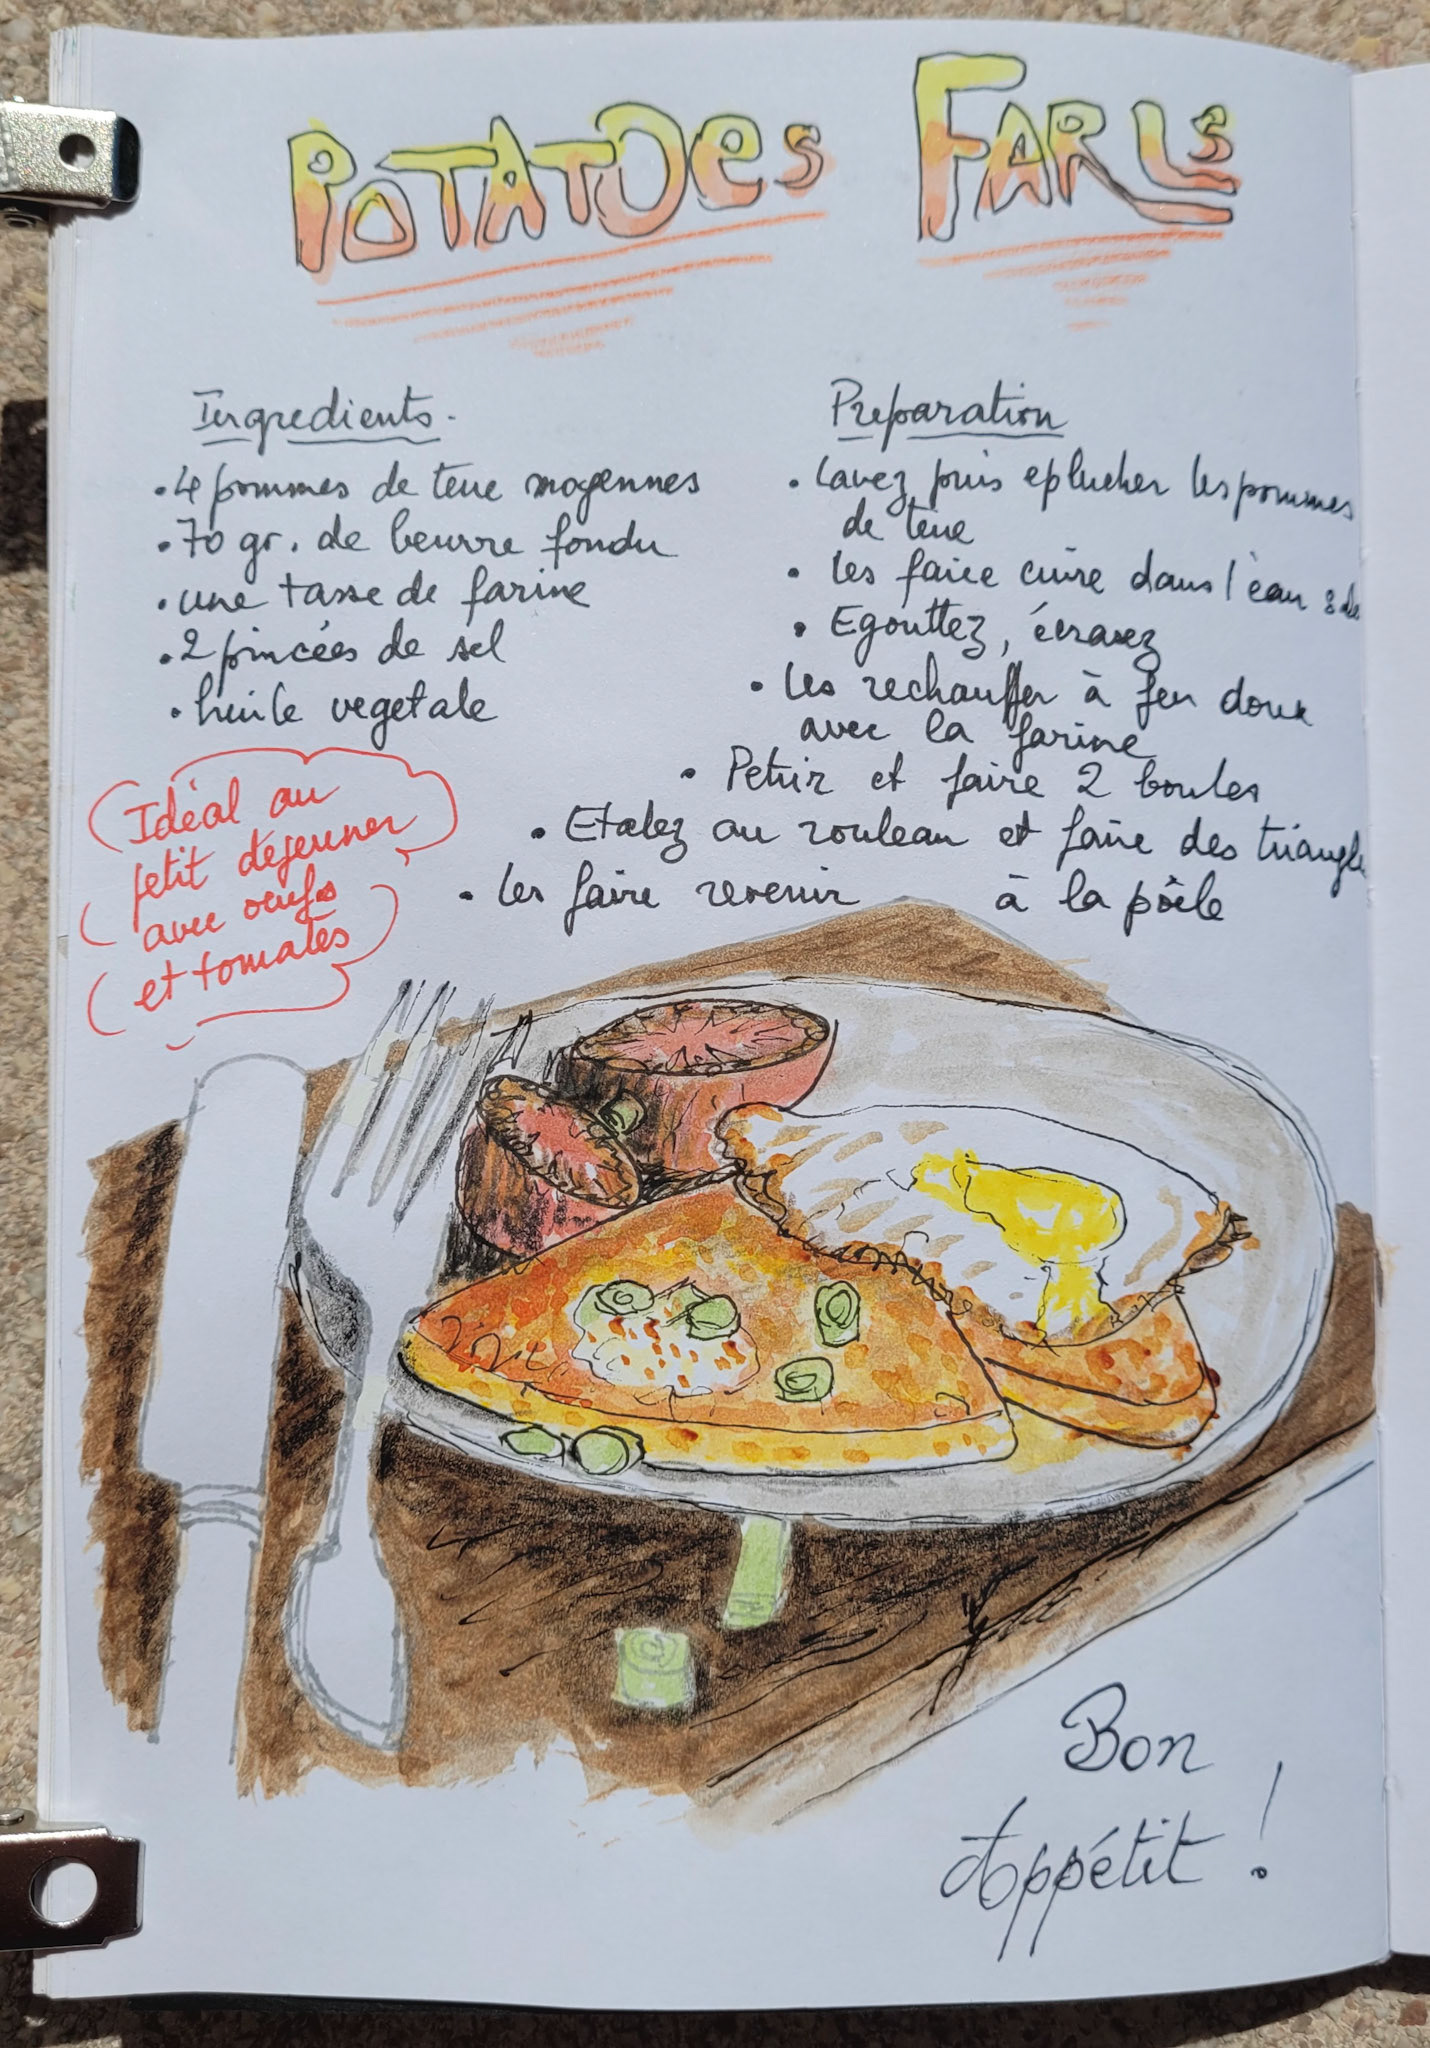 POTATOES FARLS
Ingredients.
• 4 pommes de terre moyennes
• 70 gr. de beurre fondu
• une tasse de farine
• 2 pincées de sel
• huile vegetale
Idéal au
petit dejeuner
avec oeufs
et tomates
Preparation
• Lavez puis eplucher les pommes
de terre
• Les faire cuire dans l'eau
• Egouttez, écrasez
• Les rechauffer à feu doux
avec la farine
• Petrir et faire 2 boules
• Etalez au rouleau et faire des triangle
• Les faire revenir à la pôele
Bon
Appétit !